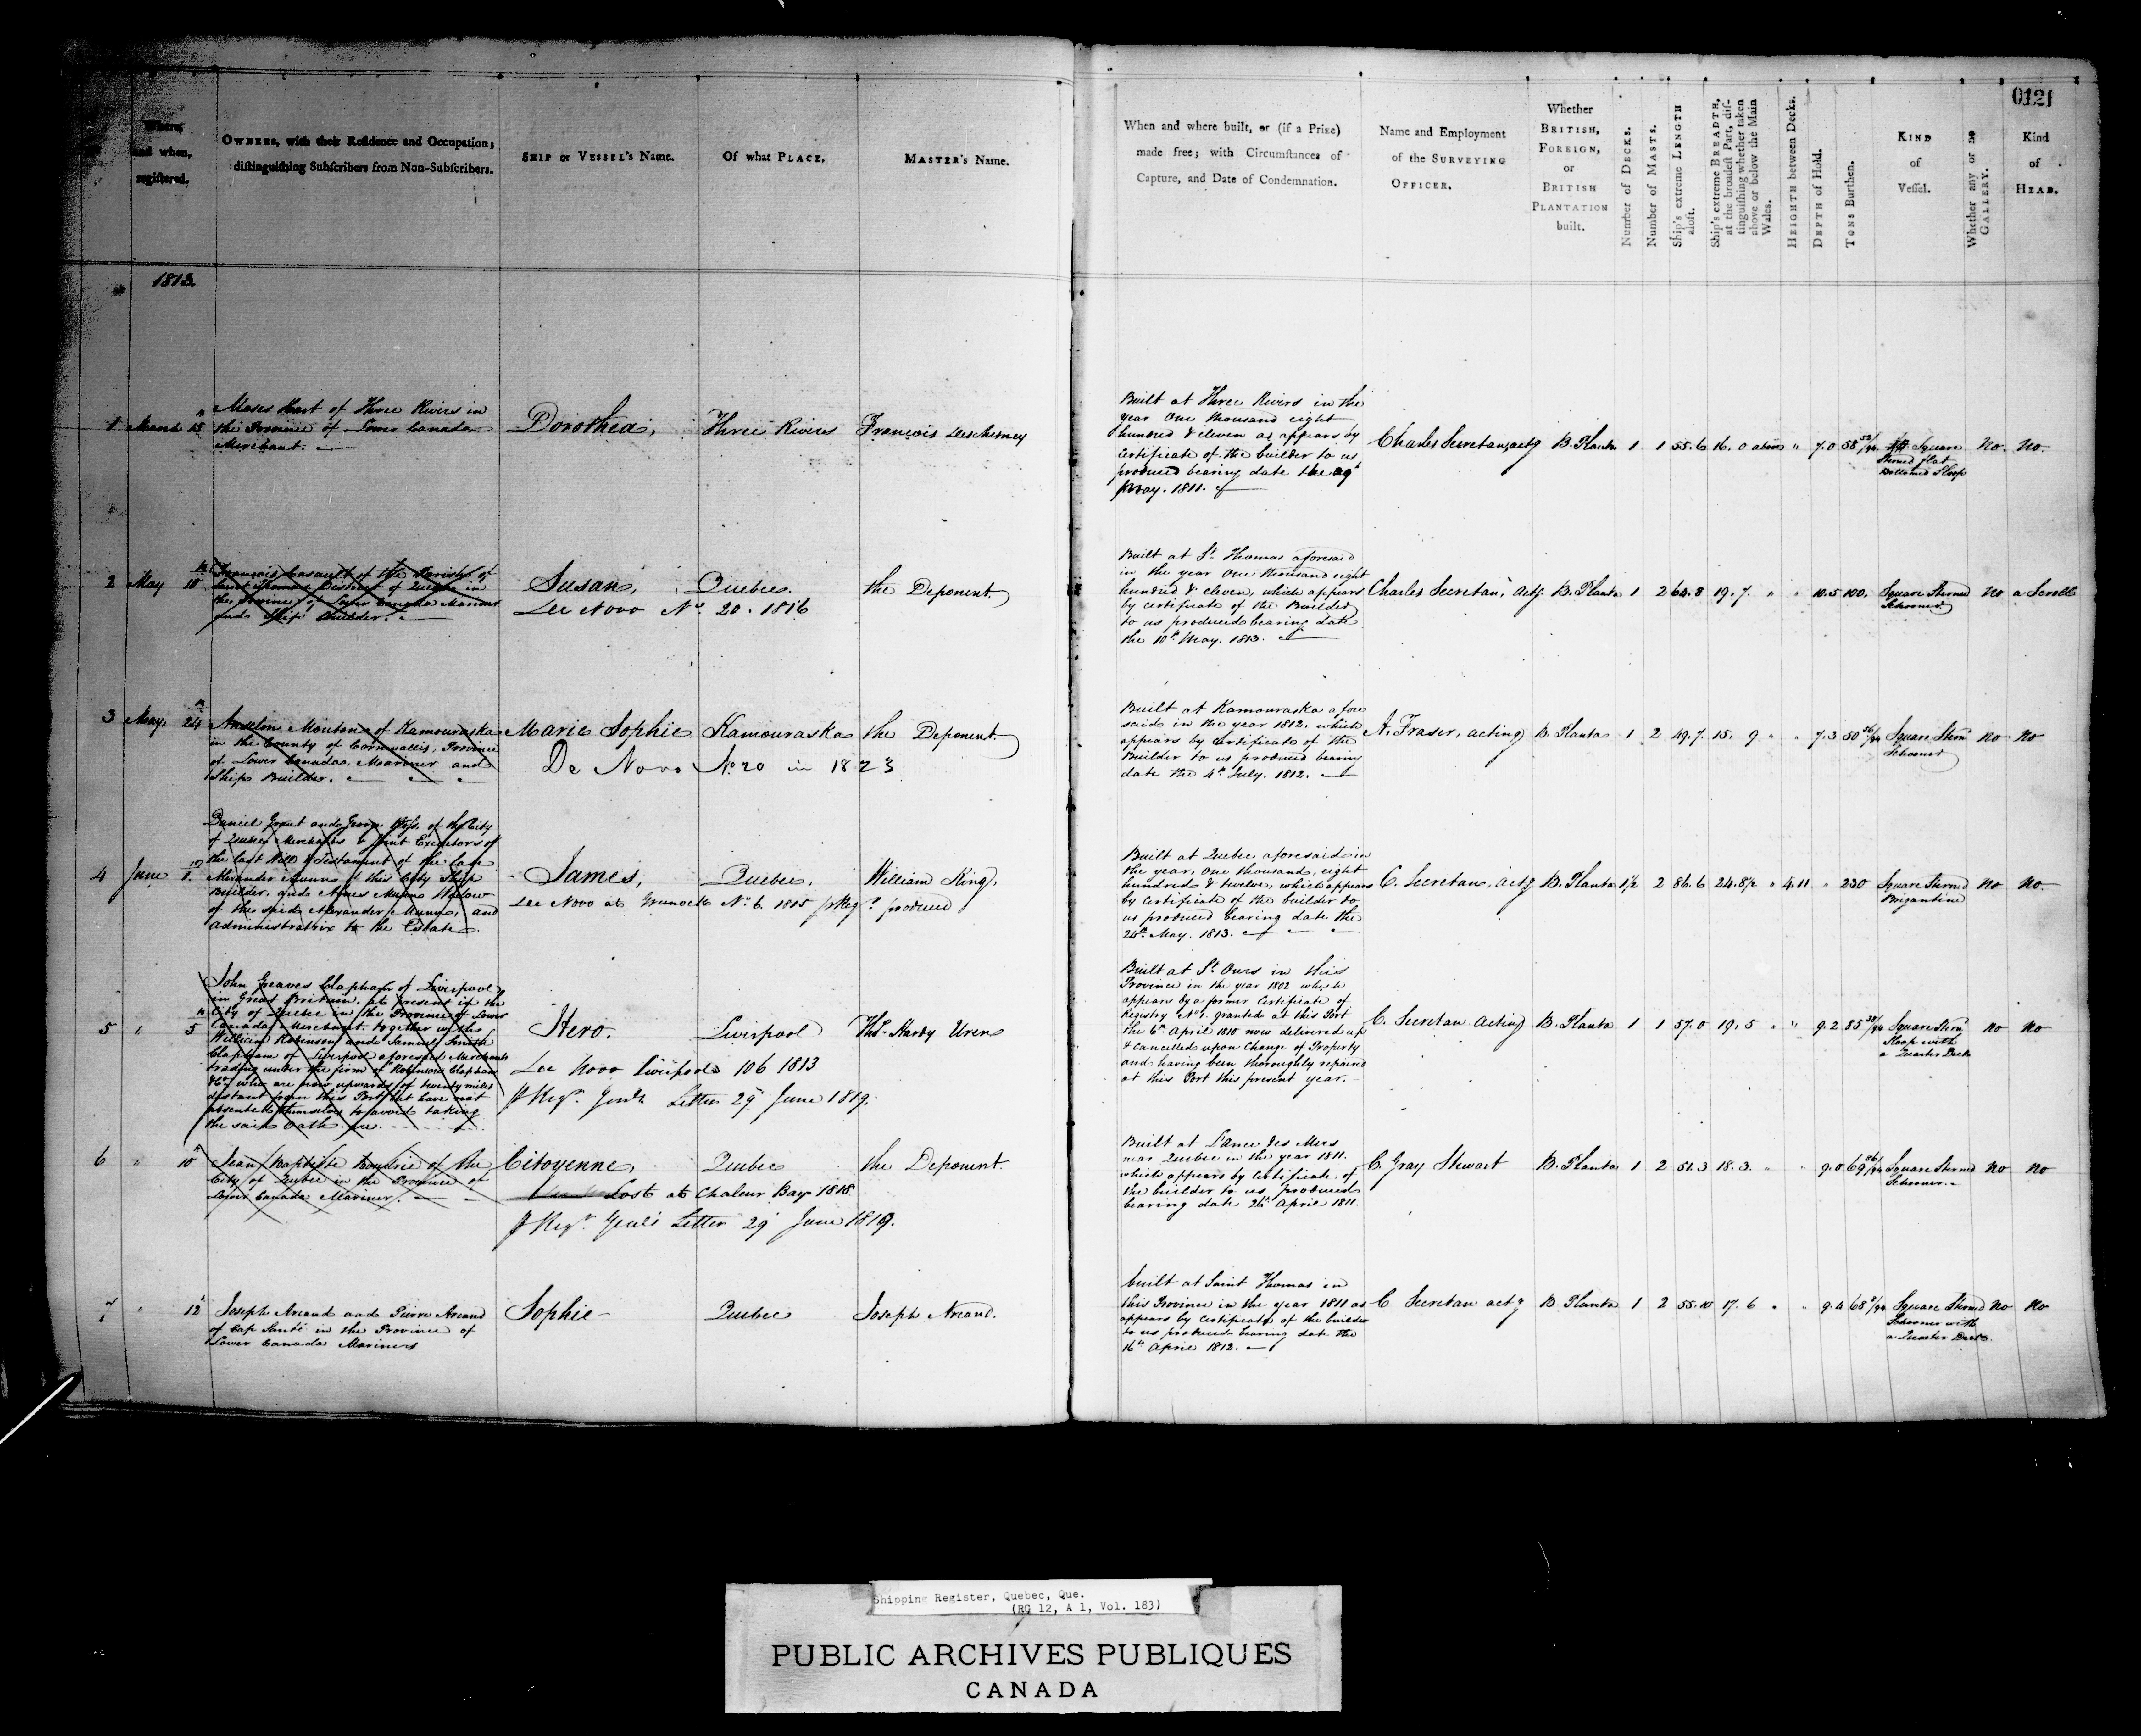 0121
Where, and when, registered.
OWNERS, with their Residence and Occupation;
distinguishing Subscribers from Non-Subscribers.
SHIP or VESSEL's Name.
Of what PLACE.
MASTER's Name.
When and where built, or (if a Prize)
made free; with Circumstances of
Capture, and Date of Condemnation.
Name and Employment
of the SURVEYING
OFFICER.
Whether
BRITISH,
FOREIGN,
or
BRITISH
PLANTATION
built.
Number of DECKS.
Number of MASTS.
Ship's extreme LENGTH
aloft.
Ship's extreme BREADTH,
at the broadest Part, dis-
tinguishing whether taken
above or below the Main
Wales.
HEIGHTH between Decks.
DEPTH of Hold.
TONS Burthen.
KIND
of
Vessel.
Whether any or no
GALLERY.
Kind
of
HEAD.
1813.
1 March 15
Moses Hart of Three Rivers in
the Province of Lower Canada
Merchant.
Dorothea, Three Rivers François
Built at Three Rivers in the
year One thousand eight
hundred & eleven as appears by
Certificate of the builder to us
produced bearing date the
May. 1811.
Charles Secretan, actg B. Planta 1 1 55.6 16.0 above " 7.0 58 Square
Sterned flat
Bottomed Sloop
No. No.
2 May 10th
François Casault of the Parish of
Saint Thomas District of Quebec in
the Province of Lower Canada Mariner
and Ship Builder.
Susan, Quebec. the Deponent.
De Novo No. 20. 1816
Built at St. Thomas aforesaid
in the year One thousand eight
hundred & eleven, which appears
by Certificate of the Builder
to us produced bearing date
the 10th May. 1813.
Charles Secretan, actg. B. Planta 1 2 64.8 19.7 " " 10.5 100. Square Sterned
Schooner
No a Scroll
3 May, 24th
Anselm Mouton of Kamouraska
in the County of Cornwallis, Province
of Lower Canada, Mariner and
Ship Builder.
Marie Sophie Kamouraska the Deponent.
De Novo No. 20 in 1823
Built at Kamouraska afore
said in the year 1812. which
appears by Certificate of the
Builder to us produced bearing
date the 4th July. 1812.
A. Fraser, acting B. Planta 1 2 49.7 15. 9 " " 7.3 50 Square Stern
Schooner
No No
4 June 1st
Daniel Grant and George Ross, of the City
of Quebec Merchants & Joint Executors of
the last Will & Testament of the late
Alexander Munn of this City Ship
Builder, and Agnes Munn Widow
of the said Alexander Munn, and
administratrix to the Estate.
James, Quebec, William King,
De Novo at Greenock No. 6. 1815 produced
Built at Quebec aforesaid in
the year, One thousand, eight
hundred & twelve, which appears
by Certificate of the builder to
us produced bearing date the
24th May. 1813.
C. Secretan, actg B. Planta 1½ 2 86.6 24.8½ " 4.11 " 230 Square Sterned
Brigantine
No No
5 " 5th
John Greaves Clapham of Liverpool
in Great Britain, at present in the
City of Quebec in the Province of Lower
Canada Merchant. together with
William Robinson and Samuel Smith
Clapham of Liverpool aforesaid Merchants
trading under the firm of Robinson Clapham
& Co. who are now upwards of twenty miles
distant from this Port but have not
absented themselves to avoid taking
the said Oath
Hero. Liverpool Thos. Hardy Uren
De Novo Liverpool 106 1813
Letter 29 June 1819.
Built at St. Ours in this
Province in the year 1802 which
appears by a former Certificate of
Registry No. 1. granted at this Port
the 6th April 1810 now delivered up
& cancelled upon Change of Property
and having been thoroughly repaired
at this Port this present year.
C. Secretan Acting B. Planta 1 1 57.0 19.5 " " 9.2 85 Square Stern
Sloop with
a Quarter Deck
No No
6 " 10th
Jean Baptiste of the
City of Quebec in the Province of
Lower Canada Mariner.
Citoyenne, Quebec the Deponent.
Lost at Chaleur Bay 1818
Letter 29 June 1819.
Built at Lance des Mers
near Quebec in the year 1811.
which appears by Certificate of
the builder to us produced
bearing date 26th April 1811.
C. Gray Stewart B. Planta 1 2 51.3 18.3. " " 9.0 69 Square Sterned
Schooner.
No No
7 " 12th
Joseph Arcand and Pierre Arcand
of Cap Santé in the Province of
Lower Canada Mariners
Sophie Quebec Joseph Arcand.
built at Saint Thomas in
this Province in the year 1811 as
appears by Certificate of the builder
to us produced bearing date the
16th April 1812.
C Secretan actg B. Planta 1 2 55.10 17.6 " " 9.4 68 Square Sterned
Schooner with
a Quarter Deck.
No No
Shipping Register, Quebec, Que.
(RG 12, A 1, Vol. 183)
PUBLIC ARCHIVES PUBLIQUES
CANADA